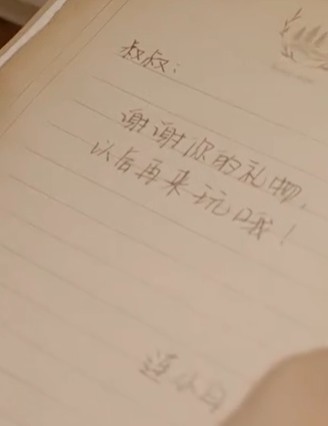 叔叔：
谢谢你的礼物，
以后再来玩哦！
莲小